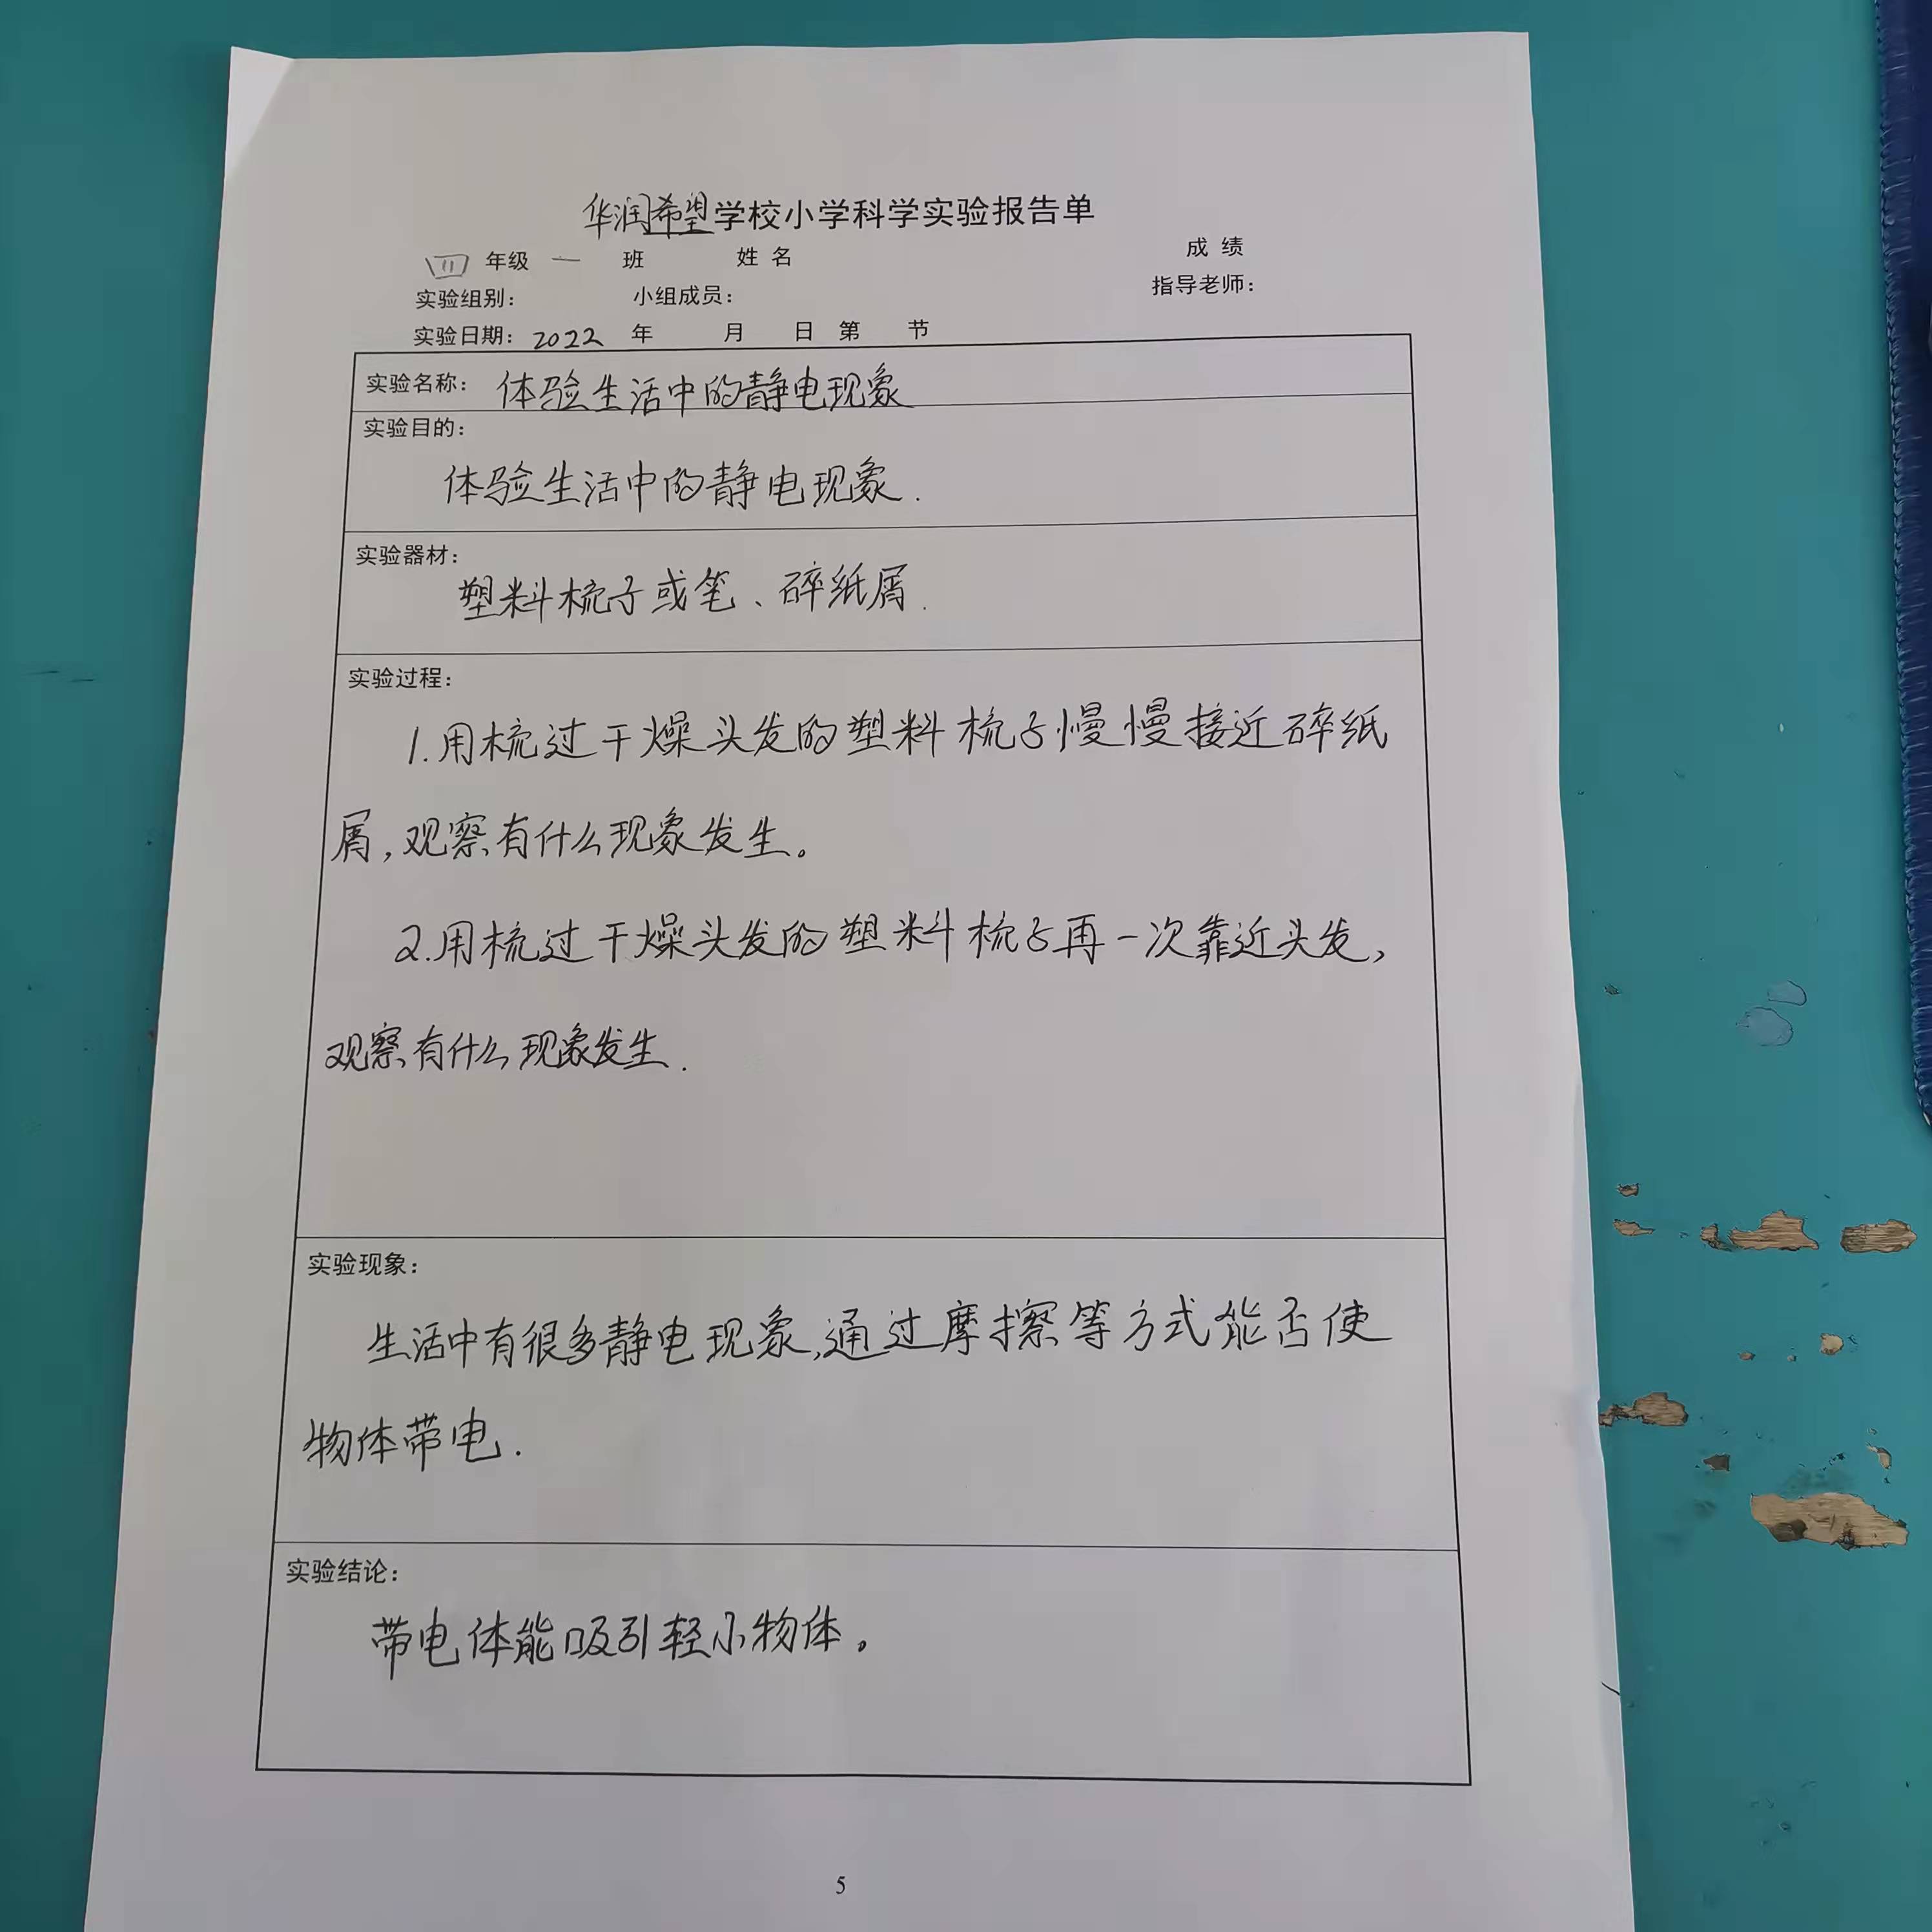 华润希望学校小学科学实验报告单
四 年级 一 班 姓名 成绩
实验组别： 小组成员： 指导老师：
实验日期：2022 年 月 日 第 节
实验名称：体验生活中的静电现象
实验目的：
体验生活中的静电现象.
实验器材：
塑料梳子或笔、碎纸屑.
实验过程：
1.用梳过干燥头发的塑料梳子慢慢接近碎纸
屑,观察有什么现象发生。
2.用梳过干燥头发的塑料梳子再一次靠近头发,
观察有什么现象发生.
实验现象：
生活中有很多静电现象,通过摩擦等方式能否使
物体带电.
实验结论：
带电体能吸引轻小物体。
5